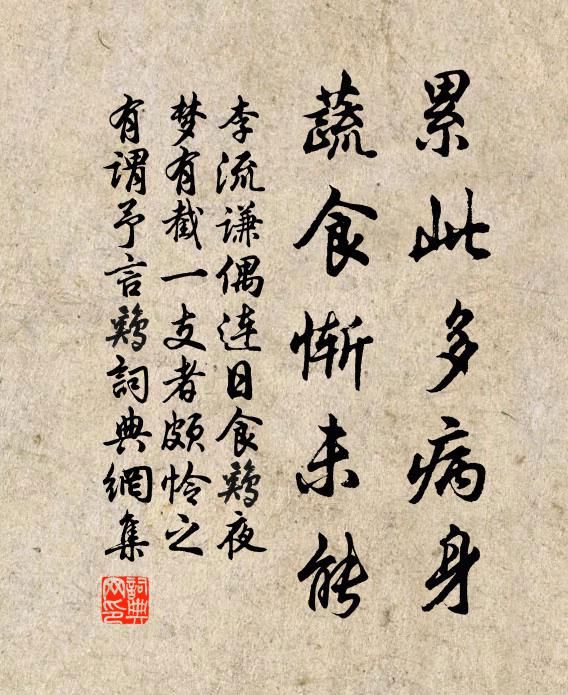 累此多病身
蔬食慚未能
李流谦偶连日食鷄夜
梦有截一支者颇怜之
有谓予言鷄詞典網集
詞典
网印